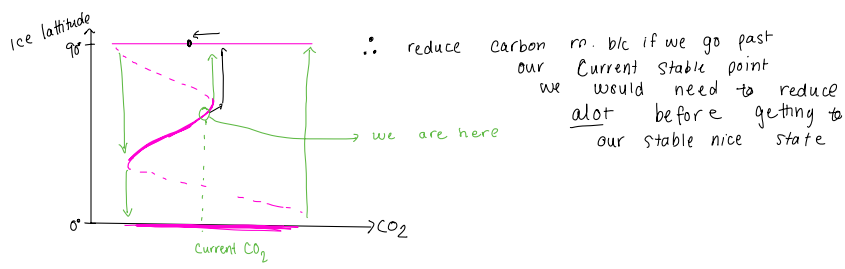 Ice lattitude
90°
0°
CO2
Current CO2
we are here
∴ reduce carbon rn. b/c if we go past
our current stable point
we would need to reduce
alot before getting to
our stable nice state